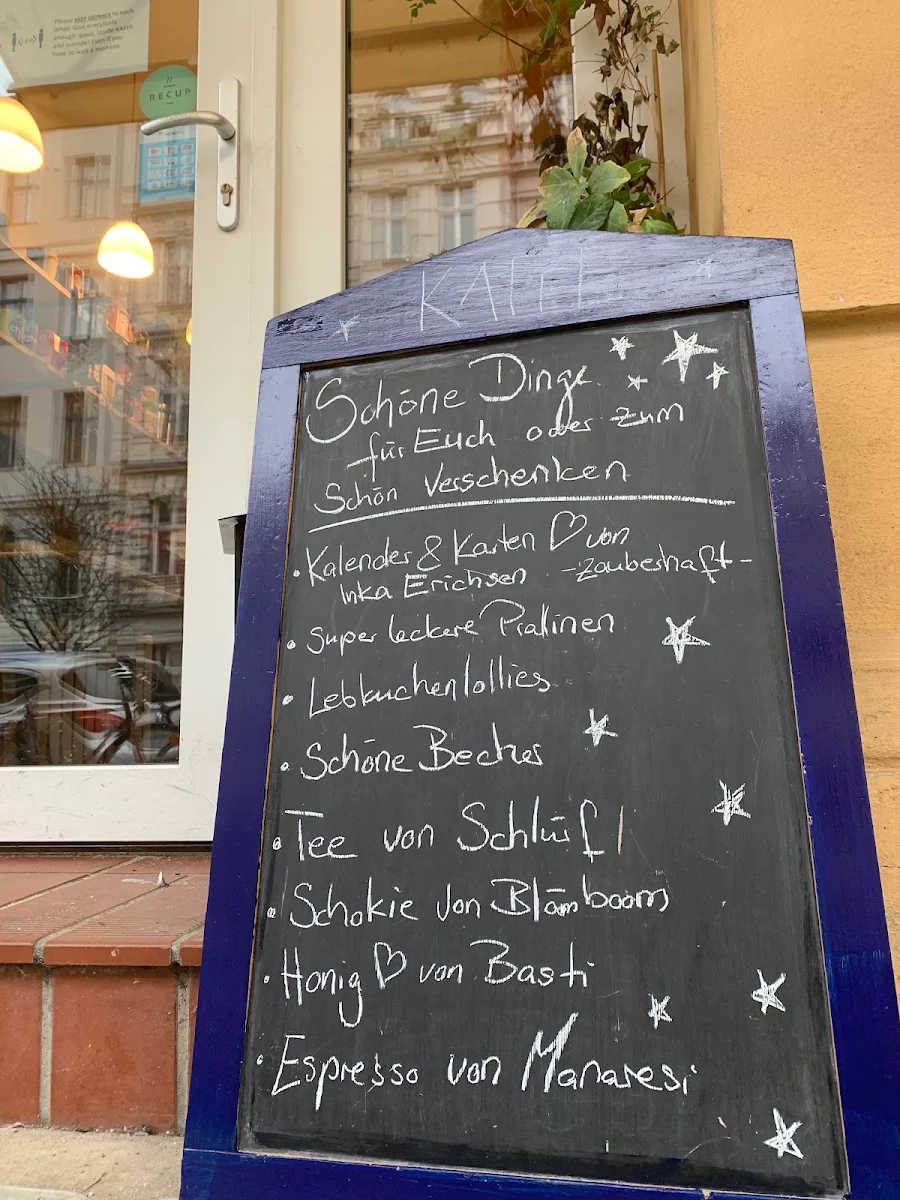 Please KEEP DISTANCE to each
other. Give everybody
enough space, inside KAFFE
and outside! Even if you
have to wait a moment.
RECUP
Schöne Dinge
für Euch oder zum
Schön Verschenken
• Kalender & Karten ♡ von
Inka Erichsen - zauberhaft -
• super leckere Pralinen
• Lebkuchenlollies
• Schöne Becher
• Tee von Schlürf
• Schokie von Blömboom
• Honig ♡ von Basti
• Espresso von Manaresi